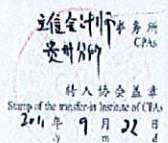 立信会计师事务所
CPAs
贵州分所
转入协会盖章
Stamp of the transfer-in Institute of CPAs
2011 年 9 月 22 日
y m d